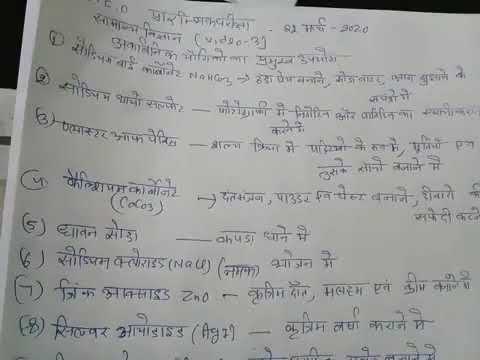 प्रारम्भिक परीक्षा - 22 मार्च - 2020
सामान्य विज्ञान (Video-3)
① अकार्बनिक यौगिकों का प्रमुख उपयोग
② सोडियम बाई कार्बोनेट NaHCO3 → ठंडा पेय बनाने, आग बुझाने के
सोडियम थायो सल्फेट — फोटोग्राफी में निगेटिव और पॉजिटिव का स्थायीकरण
करने में
(3) प्लास्टर आफ पेरिस — शल्य क्रिया में पट्टियों के रूप में, मूर्तियों एवं
उसके साँचे बनाने में
(4) कैल्शियम कार्बोनेट → दंतमंजन, पाउडर एवं पेन्ट बनाने, दीवारों की
(CaCO3) सफेदी करने
(5) धावन सोडा — कपड़ा धोने में
(6) सोडियम क्लोराइड (NaCl) (नमक) भोजन में
(7) जिंक आक्साइड ZnO — कृत्रिम दाँत, मलहम एवं क्रीम बनाने में
(8) सिल्वर आयोडाइड (AgI) — कृत्रिम वर्षा कराने में